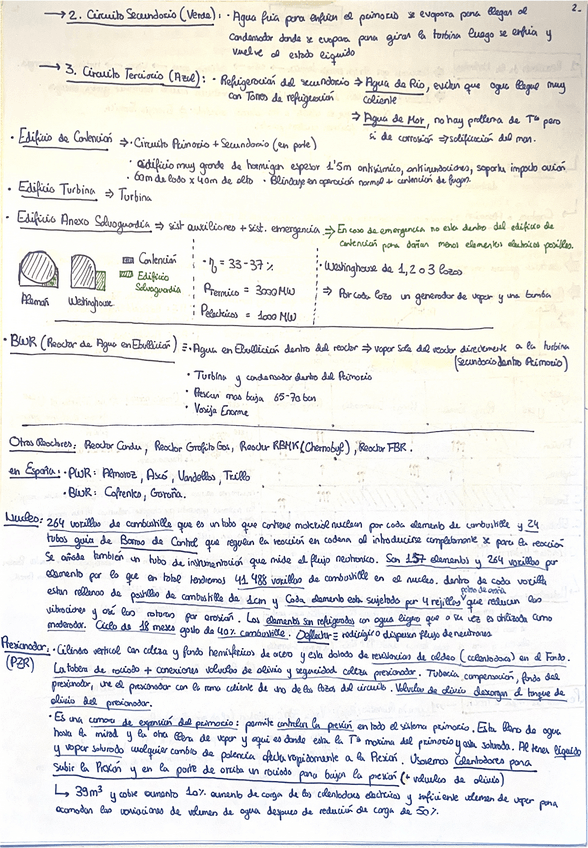 2.-
→ 2. Circuito Secundario (Verde): · Agua fria para enfriar el primario se evapora para llegar al
condensador donde se evapora para girar la turbina luego se enfria y
vuelve al estado liquido
→ 3. Circuito Terciario (Azul): · Refrigeración del secundario ⇒ Agua de Rio, evitan que agua llegue muy
con Torres de refrigeración caliente
⇒ Agua de Mar, no hay problema de Tª pero
si de corrosión ⇒ del mar.
· Edificio de Contención ⇒ · Circuito Primario + Secundario (en parte)
· edificio muy grande de hormigon espesor 1'5m antisismico, antiinundaciones, soporta impacto avión
· 60m de lado x 40m de alto · Blindaje en operación normal + contención de fugas.
· Edificio Turbina ⇒ Turbina
· Edificio Anexo Salvaguardia ⇒ sist auxiliares + sist. emergencia ⇒ En caso de emergencia no esta dentro del edificio de
contencion para dañar menos elementos electricos posibles.
Contención
Edificio
Salvaguardia
Alemán Westinghouse
· η = 33-37 %
Ptermico = 3000 MW
Pelectrica = 1000 MW
· Westinghouse de 1, 2 o 3 lazos
⇒ Por cada lazo un generador de vapor y una bomba
· BWR (Reactor de Agua en Ebullición) = · Agua en Ebullición dentro del reactor ⇒ vapor sale del reactor directamente a la turbina
(secundario dentro Primario)
· Turbina y condensador dentro del Primario
· Presion mas baja 65-70 bar
· Vasija Enorme
Otros Reactores: Reactor Candu, Reactor Grafito Gas, Reactor RBMK (Chernobyl), Reactor FBR.
en España: · PWR: Almaraz, Ascó, Vandellos, Trillo
· BWR: Cofrentes, Garoña.
Nucleo: 264 varillas de combustible que es un tubo que contiene material nuclear por cada elemento de combustible y 24
tubos guia de Barras de Control que regulan la reacción en cadena al introducirse completamente se para la reacción
Se añade también un tubo de instrumentación que mide el flujo neutronico. Son 157 elementos y 264 varillas por
elemento por lo que en total tendremos 41 488 varillas de combustible en el nucleo. dentro de cada varilla
estan rellenas de pastillas de combustible de 1cm y Cada elemento esta sujetado por 4 rejillas que reducen las
vibraciones y asi las roturas por erosión. Los elementos son refrigerados con agua ligera que a su vez es utilizada como
moderador. Ciclo de 18 meses gasto de 40% combustible. Deflector = disperson flujo de neutrones
Presionador: · Cilindro vertical con cabeza y fondo hemisfericos de acero y esta dotado de resistencias de caldeo (calentadores) en el Fondo.
(PZR) La tobera de rociado + conexiones valvulas de alivio y seguridad cabeza presionador. Tuberia compensación, fondo del
presionador, une el presionador con la rama caliente de uno de los lazos del circuito. Valvulas de alivio descargan al tanque de
alivio del presionador.
· Es una camara de expansión del primario: permite controlar la presión en todo el sistema primario. Esta lleno de agua
hasta la mitad y la otra lleno de vapor y aqui es donde esta la Tª maxima del primario y esta saturada. Al tener liquido
y vapor saturado cualquier cambio de potencia afecta rapidamente a la Presión. Usaremos Calentadores para
subir la Presión y en la parte de arriba un rociado para bajar la presión (+ valvulas de alivio)
↳ 39m³ y cubre aumento 10% aumento de carga de los calentadores electricos y suficiente volumen de vapor para
acomodar las variaciones de volumen de agua despues de reducción de carga de 50%.